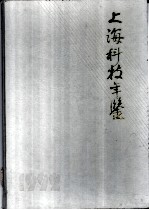 上海科技年鉴